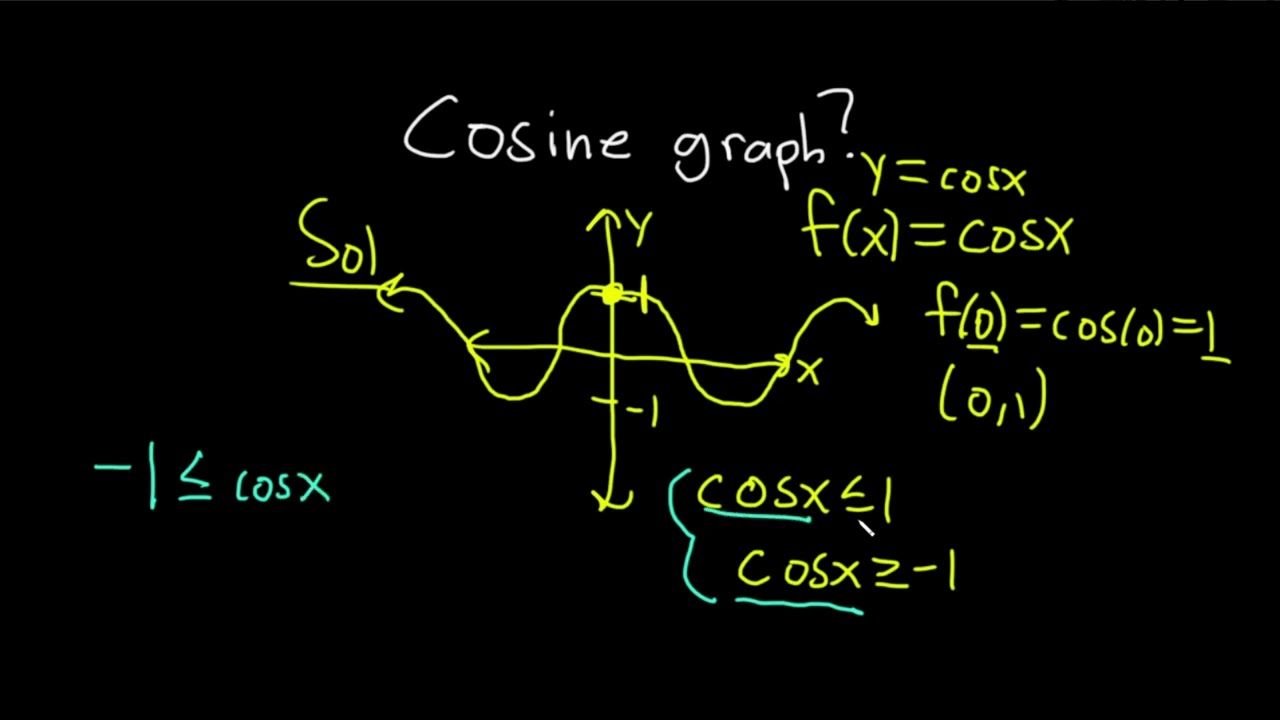 Cosine graph?
y = cosx
f(x) = cosx
Sol
y
1
f(0) = cos(0) = 1
x
(0,1)
-1
-1 ≤ cosx
cosx ≤ 1
cosx ≥ -1